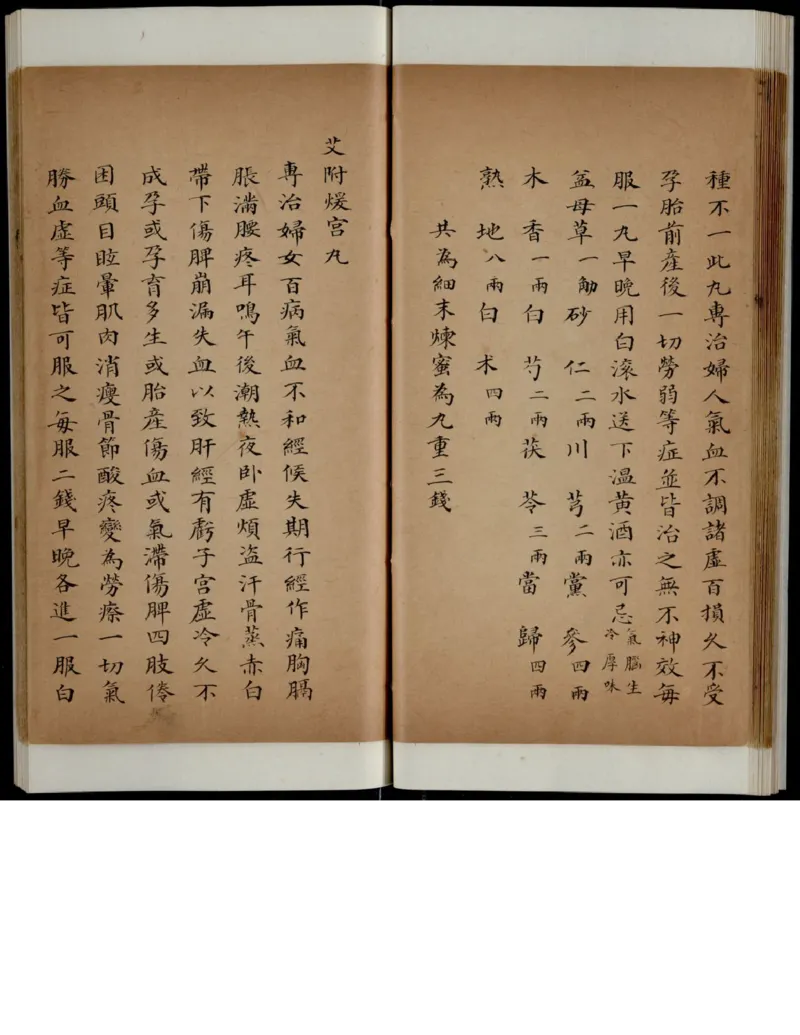 種不一此九專治婦人氣血不調諸虛百損久不受
孕胎前產後一切勞弱等症並皆治之無不神效每
服一九早晚用白滚水送下温黄酒亦可忌氣腦生冷厚味
益母草一觔砂仁二兩川芎二兩黨參四兩
木香一兩白芍二兩茯苓三兩當歸四兩
熟地八兩白朮四兩
共為細末煉蜜為九重三錢
艾附煖宮九
專治婦女百病氣血不和經候失期行經作痛胸膈
脹滿腰疼耳鳴午後潮熱夜卧虛煩盗汗骨蒸赤白
帶下傷脾崩漏失血以致肝經有虧子宮虛冷久不
成孕或孕育多生或胎產傷血或氣滯傷脾四肢倦
困頭目眩暈肌肉消瘦骨節酸疼變為勞瘵一切氣
勝血虛等症皆可服之每服二錢早晚各進一服白